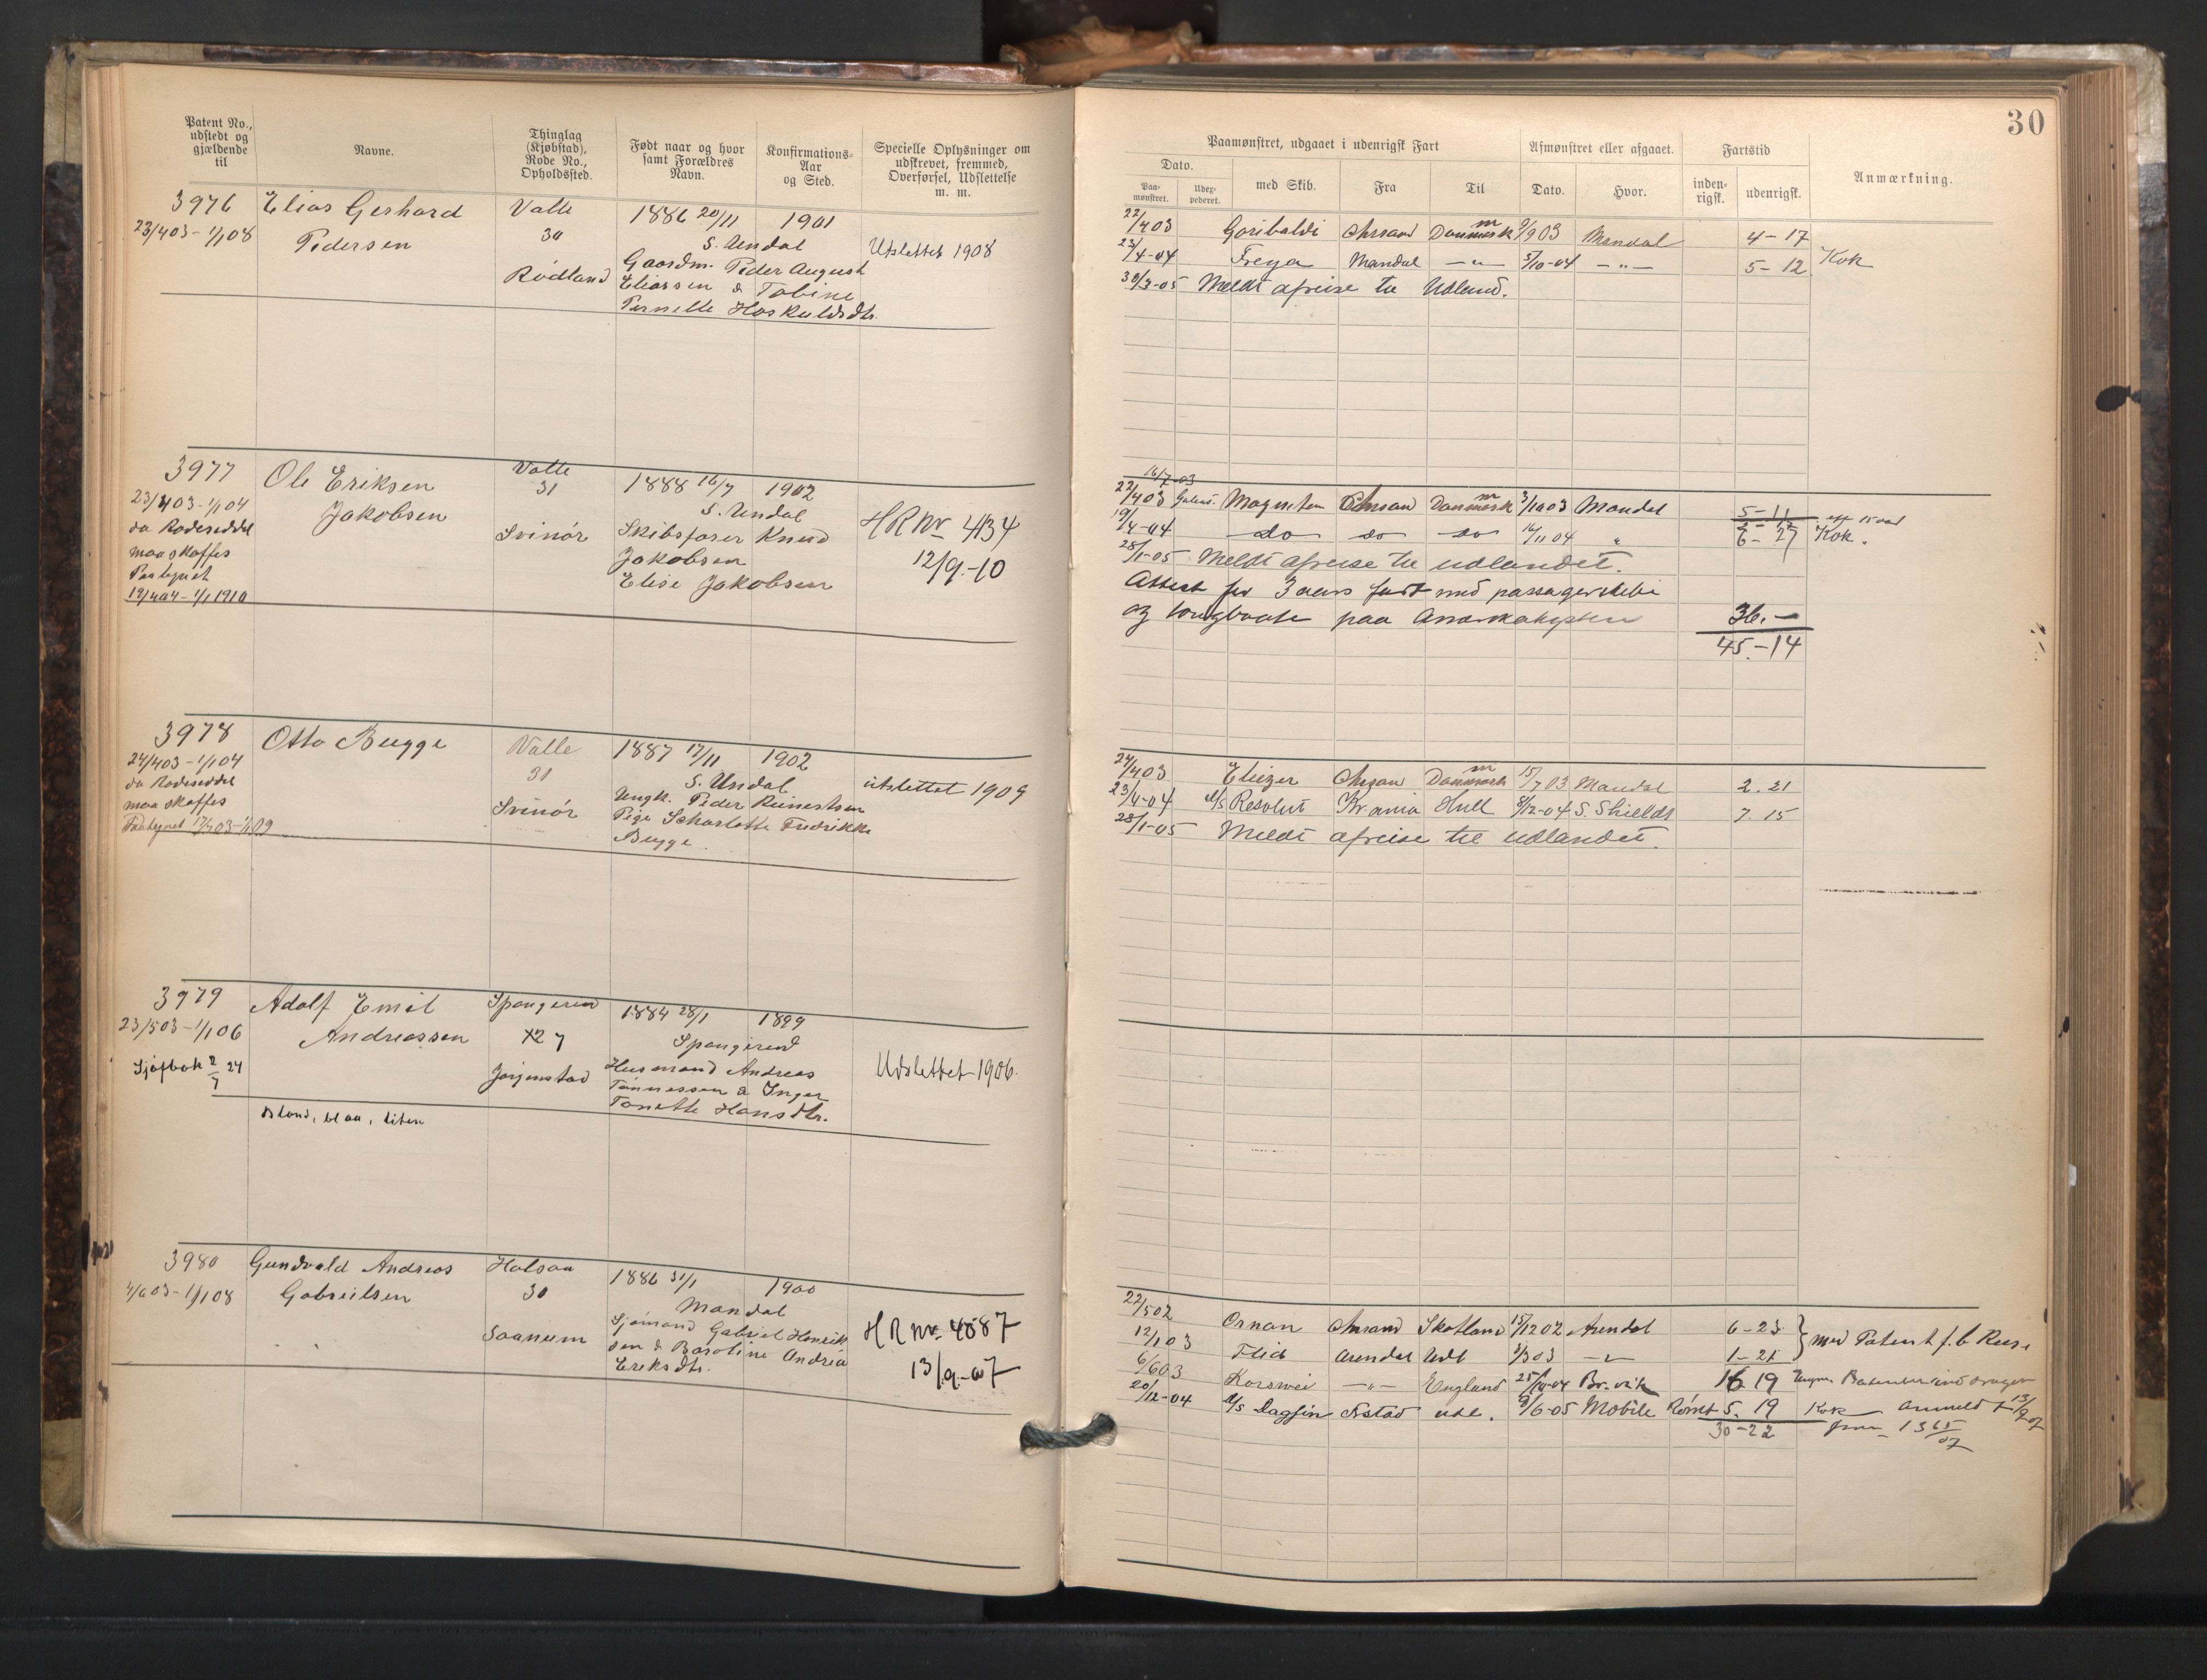 30
Patent No., udstedt og gjældende til
Navne.
Thinglag (Kjøbstad), Rode No., Opholdssted.
Født naar og hvor samt Forældres Navn.
Konfirmations-Aar og Sted.
Specielle Oplysninger om udskrevet, fremmed, Overførsel, Udslettelse m. m.
Paamønstret, udgaaet i udenrigsk Fart
Afmønstret eller afgaaet.
Fartstid
Dato.
Paa-mønstret.
med Skib.
Fra
Til
Dato.
Hvor.
inden-rigsk.
udenrigsk.
Anmærkning.
3976
23/4 03 - 1/1 08
Elias Gerhard
Pedersen
Valle
30
Rødland
1886 20/11 1901
S. Undal
Gaardm. Peder August
Eliassen & Tobine
Pernille Haskuldsdtr.
Udslettet 1908
22/4 03 Garibaldi Chrsand Danmark 9/9 03 Mandal 4-17
23/4-04 Freya Mandal -"- 5/10-04 -"- 5-12 Kok
30/3-05 Meldt afreise til Udland.
3977
23/4 03 - 1/1 04
da Rodeseddel
maa skaffes
Paategnet
12/4 04 - 1/1 1910
Ole Eriksen
Jakobsen
Valle
31
Svinør
1888 16/7 1902
S. Undal
Skibsfører Knud
Jakobsen
Elise Jakobsen
H R Nr 434
12/9.-10
16/7-03
22/4 03 Chrsand Danmark 3/10 03 Mandal 5-11
19/4-04 do do do 16/11 04 " 6-27 Kok.
28/1-05 Meldt afreise til udlandet.
Attest for 3 aars fart med passagerskibe
og tougbaate paa Amerikakysten 36.-
45.-14
3978
24/4 03 - 1/1 04
da Rodeseddel
maa skaffes
Paategnet 17/7 03 - 1/1 09
Otto Bugge
Valle
31
Svinør
1887 17/11 1902
S. Undal
Ungk. Peder Reinertsen
Pige Scharlotte Fredrikke
Bugge.
utslettet 1909
24/4 03 Eliezer Chrsan Danmark 15/7 03 Mandal 2.21
23/4-04 Resolut Kr ania Hull 8/12-04 S. Shields 7.15
28/1-05 Meldt afreise til udlandet.
3979
23/5 03 - 1/1 06
Sjøfbok 2/7 24
Adolf Emil
Andreassen
Blond, blaa, liten
Spangereid
27
Jørgenstad
1884 28/1 1899
Spangereid
Husmand Andreas
Tønnessen & Inger
Tonette Hansdtr.
Udslettet 1906.
3980
4/6 03 - 1/1 08
Gundvald Andreas
Gabrielsen
Halsaa
30
Saanum
1886 31/1 1900
Mandal
Sjømand Gabriel Henrik
sen & Baroline Andrea
Eriksdtr.
H R Nr. 4887
13/9.-07
22/5 02 Ornan Chrsand Skotland 15/12 02 Arendal 6-23
12/1 03 Flid Arendal Udl 3/3 03 -"- 1-21 med Patent f. b Reise
6/6 03 Korsvei -"- England 25/10-04 Br.vik 16 19
20/12-04 Dagfin Frstad udl. 9/6-05 Mobile Rømt 5.19 Kok
30-22